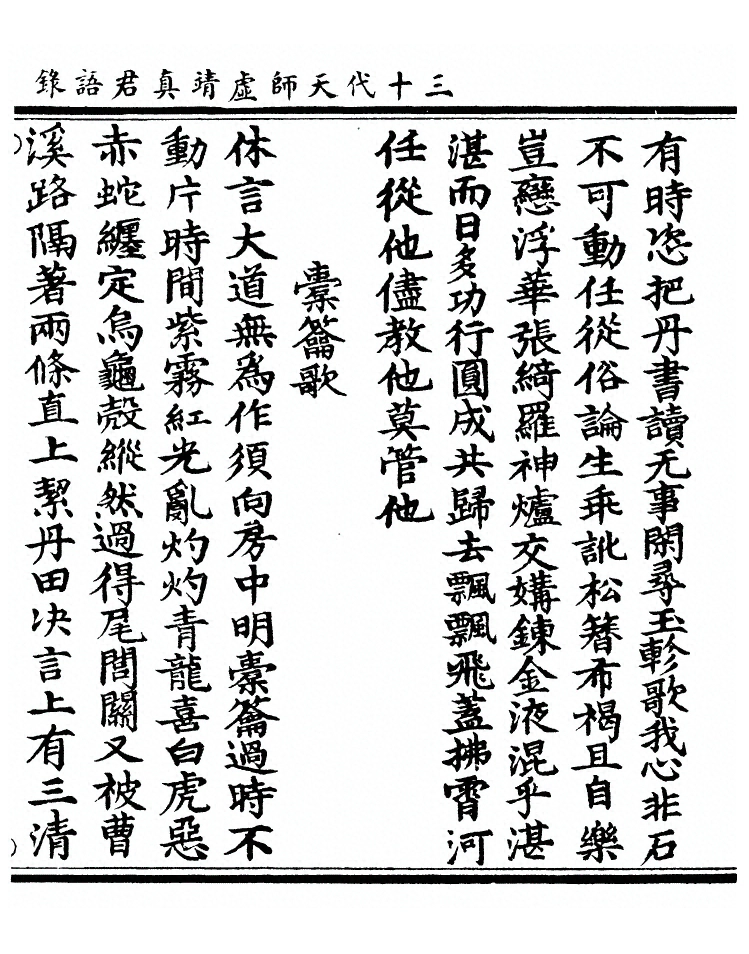 三十代天師虛靖真君語錄
有時恣把丹書讀无事閑尋玉軫歌我心非石
不可動任從俗論生乖訛松簪布褐且自樂
豈戀浮華張綺羅神爐交媾鍊金液混乎湛
湛而日多功行圓成共歸去飄飄飛蓋拂霄河
任從他儘教他莫管他
橐籥歌
休言大道無為作須向房中明橐籥過時不
動片時間紫霧紅光亂灼灼青龍喜白虎惡
赤蛇纏定烏龜殼縱然過得尾閭關又被曹
溪路隔著兩條直上潔丹田決言上有三清